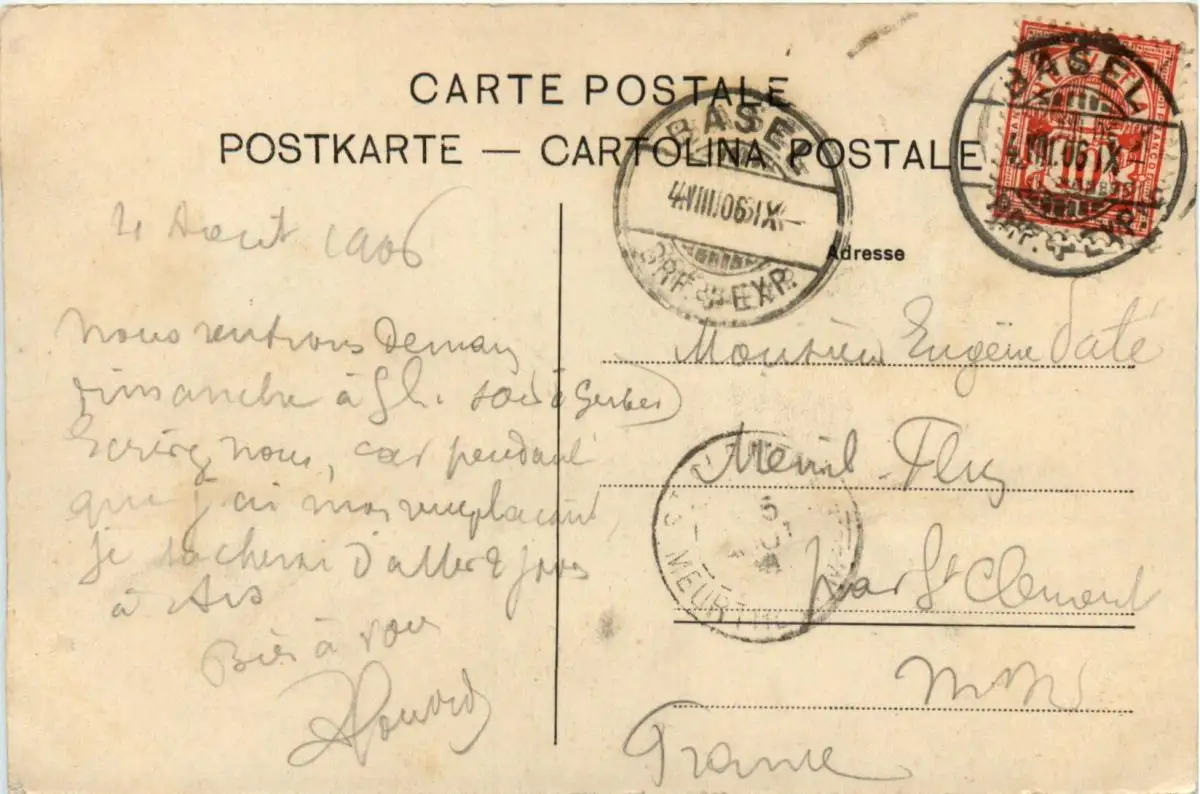 CARTE POSTALE
POSTKARTE — CARTOLINA POSTALE
BASEL
4.VIII.06.IX–
BRF. EXP.
BASEL
4.VIII.06.IX–
BRF. EXP.
10
FRANCO
4 Août 1906
Nous rentrons demain
dimanche à
Ecrivez nous, car pendant
que j'ai mon remplaçant,
je tacherai d'aller 2 jours
à
Bien à vous
Adresse
Monsieur Eugène Paté
Mesnil-Flin
par St Clément
M M
France
MEURTHE